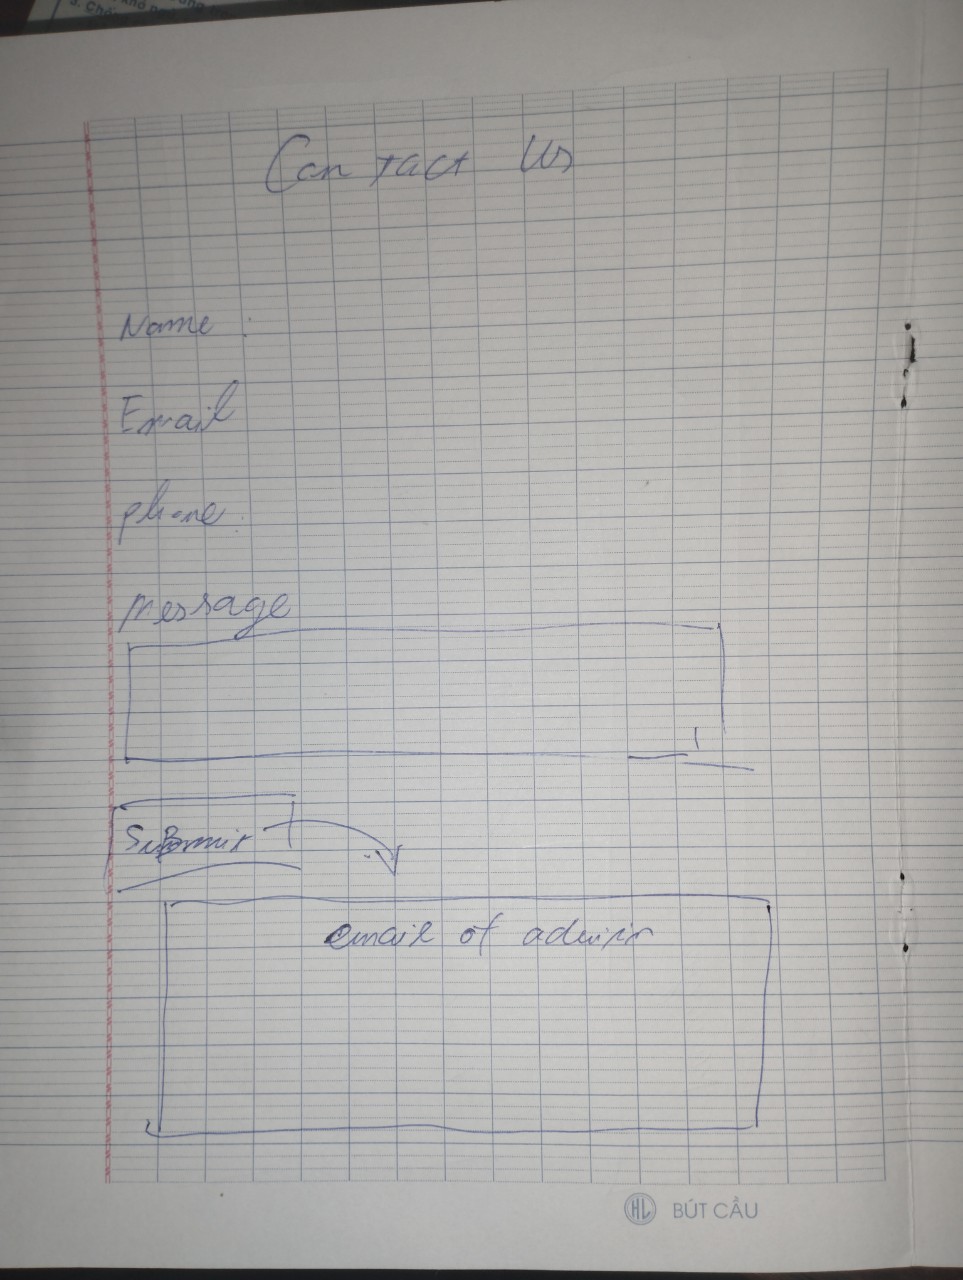 Contact Us
Name :
Email
phone :
message
Submit
email of admin
HL BÚT CẦU